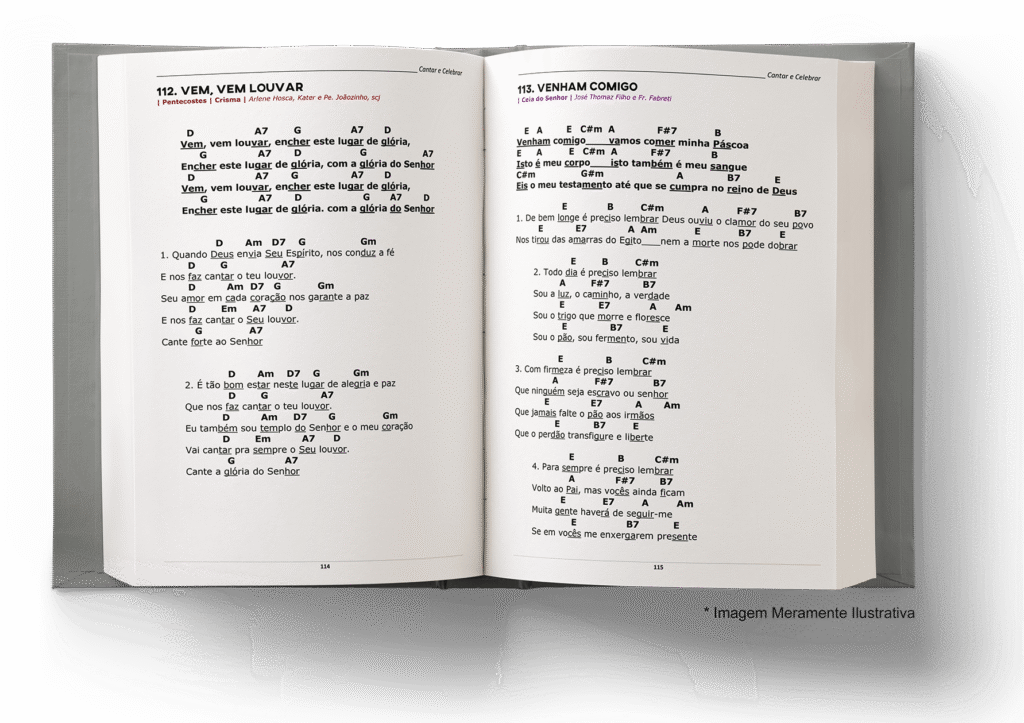 Cantar e Celebrar
112. VEM, VEM LOUVAR
| Pentecostes | Crisma | Arlene Hosca, Kater e Pe. Joãozinho, scj
D A7 G A7 D
Vem, vem louvar, encher este lugar de glória,
G A7 D G A7
Encher este lugar de glória, com a glória do Senhor
D A7 G A7 D
Vem, vem louvar, encher este lugar de glória,
G A7 D G A7 D
Encher este lugar de glória. com a glória do Senhor
D Am D7 G Gm
1. Quando Deus envia Seu Espírito, nos conduz a fé
D G A7
E nos faz cantar o teu louvor.
D Am D7 G Gm
Seu amor em cada coração nos garante a paz
D Em A7 D
E nos faz cantar o Seu louvor.
G A7
Cante forte ao Senhor
D Am D7 G Gm
2. É tão bom estar neste lugar de alegria e paz
D G A7
Que nos faz cantar o teu louvor.
D Am D7 G Gm
Eu também sou templo do Senhor e o meu coração
D Em A7 D
Vai cantar pra sempre o Seu louvor.
G A7
Cante a glória do Senhor
114
Cantar e Celebrar
113. VENHAM COMIGO
| Ceia do Senhor | José Thomaz Filho e Fr. Fabreti
E A E C#m A F#7 B
Venham comigo____vamos comer minha Páscoa
E A E C#m A F#7 B
Isto é meu corpo____isto também é meu sangue
C#m G#m A B7 E
Eis o meu testamento até que se cumpra no reino de Deus
E B C#m A F#7 B7
1. De bem longe é preciso lembrar Deus ouviu o clamor do seu povo
E E7 A Am E B7 E
Nos tirou das amarras do Egito____nem a morte nos pode dobrar
E B C#m
2. Todo dia é preciso lembrar
A F#7 B7
Sou a luz, o caminho, a verdade
E E7 A Am
Sou o trigo que morre e floresce
E B7 E
Sou o pão, sou fermento, sou vida
E B C#m
3. Com firmeza é preciso lembrar
A F#7 B7
Que ninguém seja escravo ou senhor
E E7 A Am
Que jamais falte o pão aos irmãos
E B7 E
Que o perdão transfigure e liberte
E B C#m
4. Para sempre é preciso lembrar
A F#7 B7
Volto ao Pai, mas vocês ainda ficam
E E7 A Am
Muita gente haverá de seguir-me
E B7 E
Se em vocês me enxergarem presente
115
* Imagem Meramente Ilustrativa